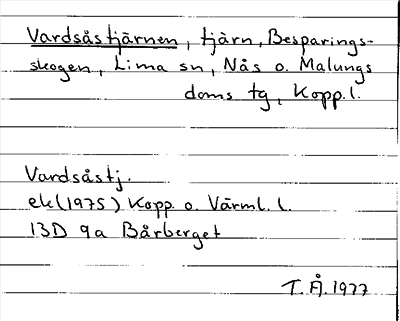 Vardsåstjärnen, tjärn, Besparings-
skogen, Lima sn, Nås o. Malungs
doms tg, Kopp. l.
Vardsåstj.
ek (1975) Kopp. o. Värml. l.
13D 9a Bårberget
T.Å. 1977